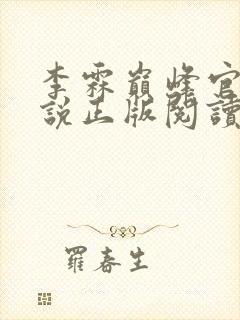 李霖巔峰官
說正版閱讀
羅春生